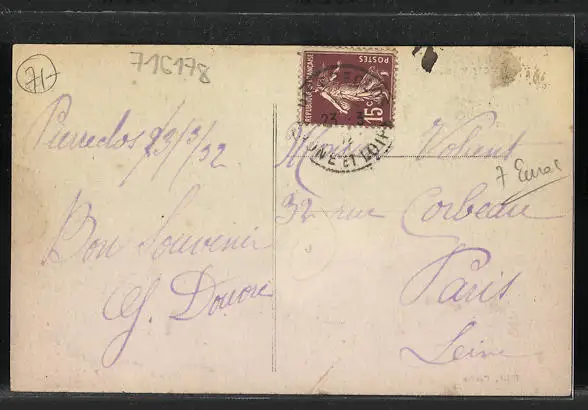 71-
716178
POSTES
REPUBLIQUE FRANÇAISE
15c
23 3
SAONE ET LOIRE
Pierreclos 23/3/32
Bon Souvenir
Monsieur Volant
32 rue Corbeau
Paris
Seine
7 Euros